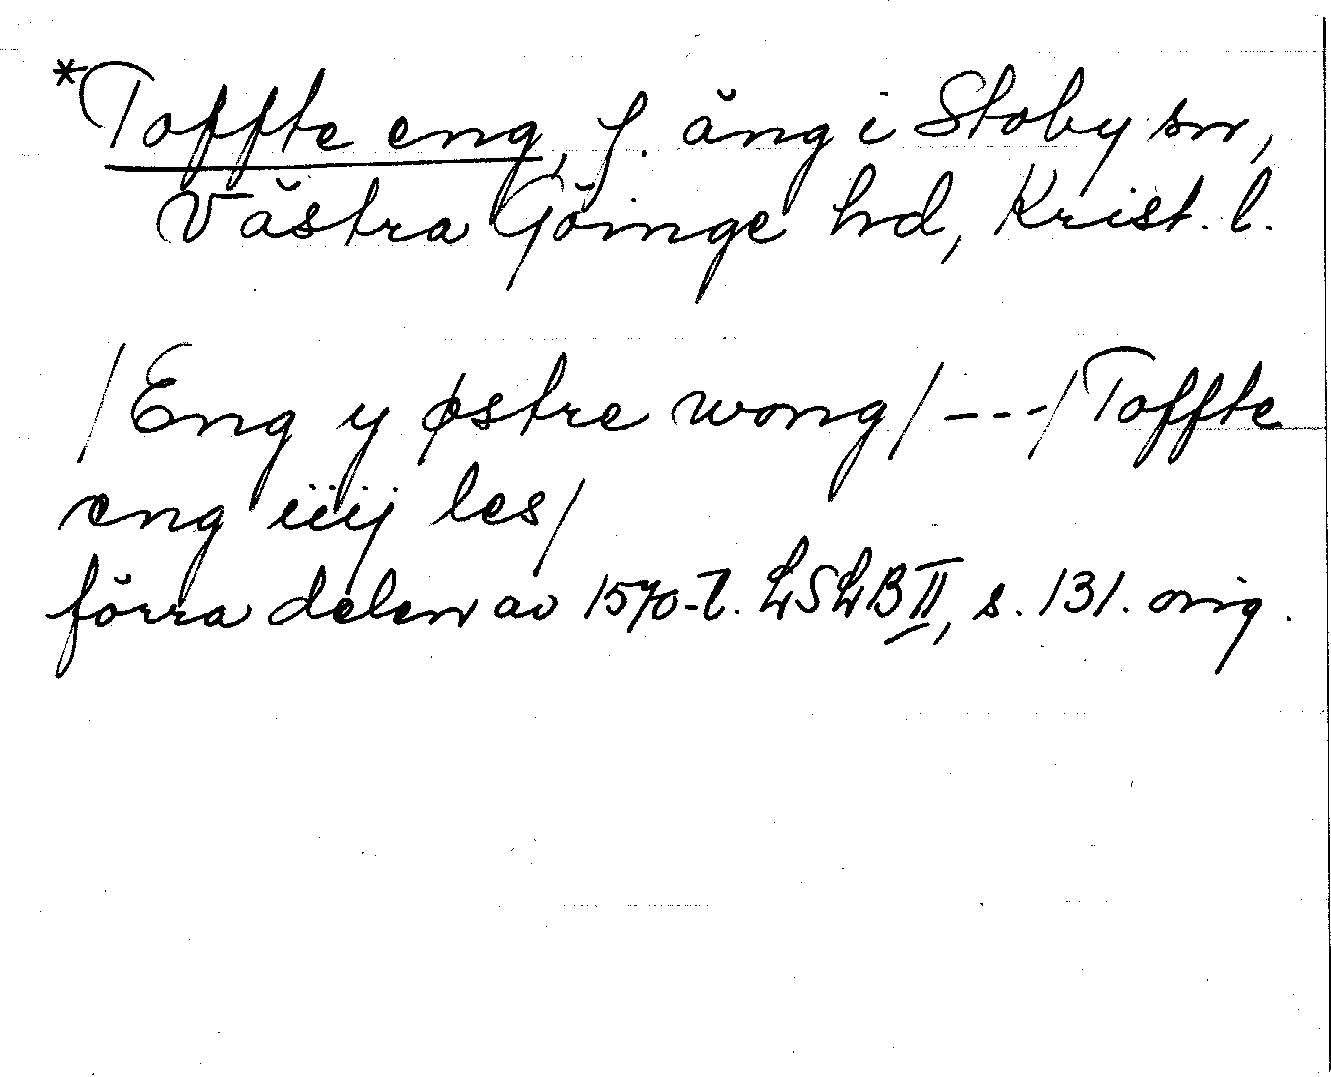 *Toffte eng, f. äng i Stoby sn,
Västra Göinge hd, Krist. l.
/Eng y østre wong/ --- /Toffte
eng iiij les/
förra delen av 1570-t. LSLB II, s. 131. orig.